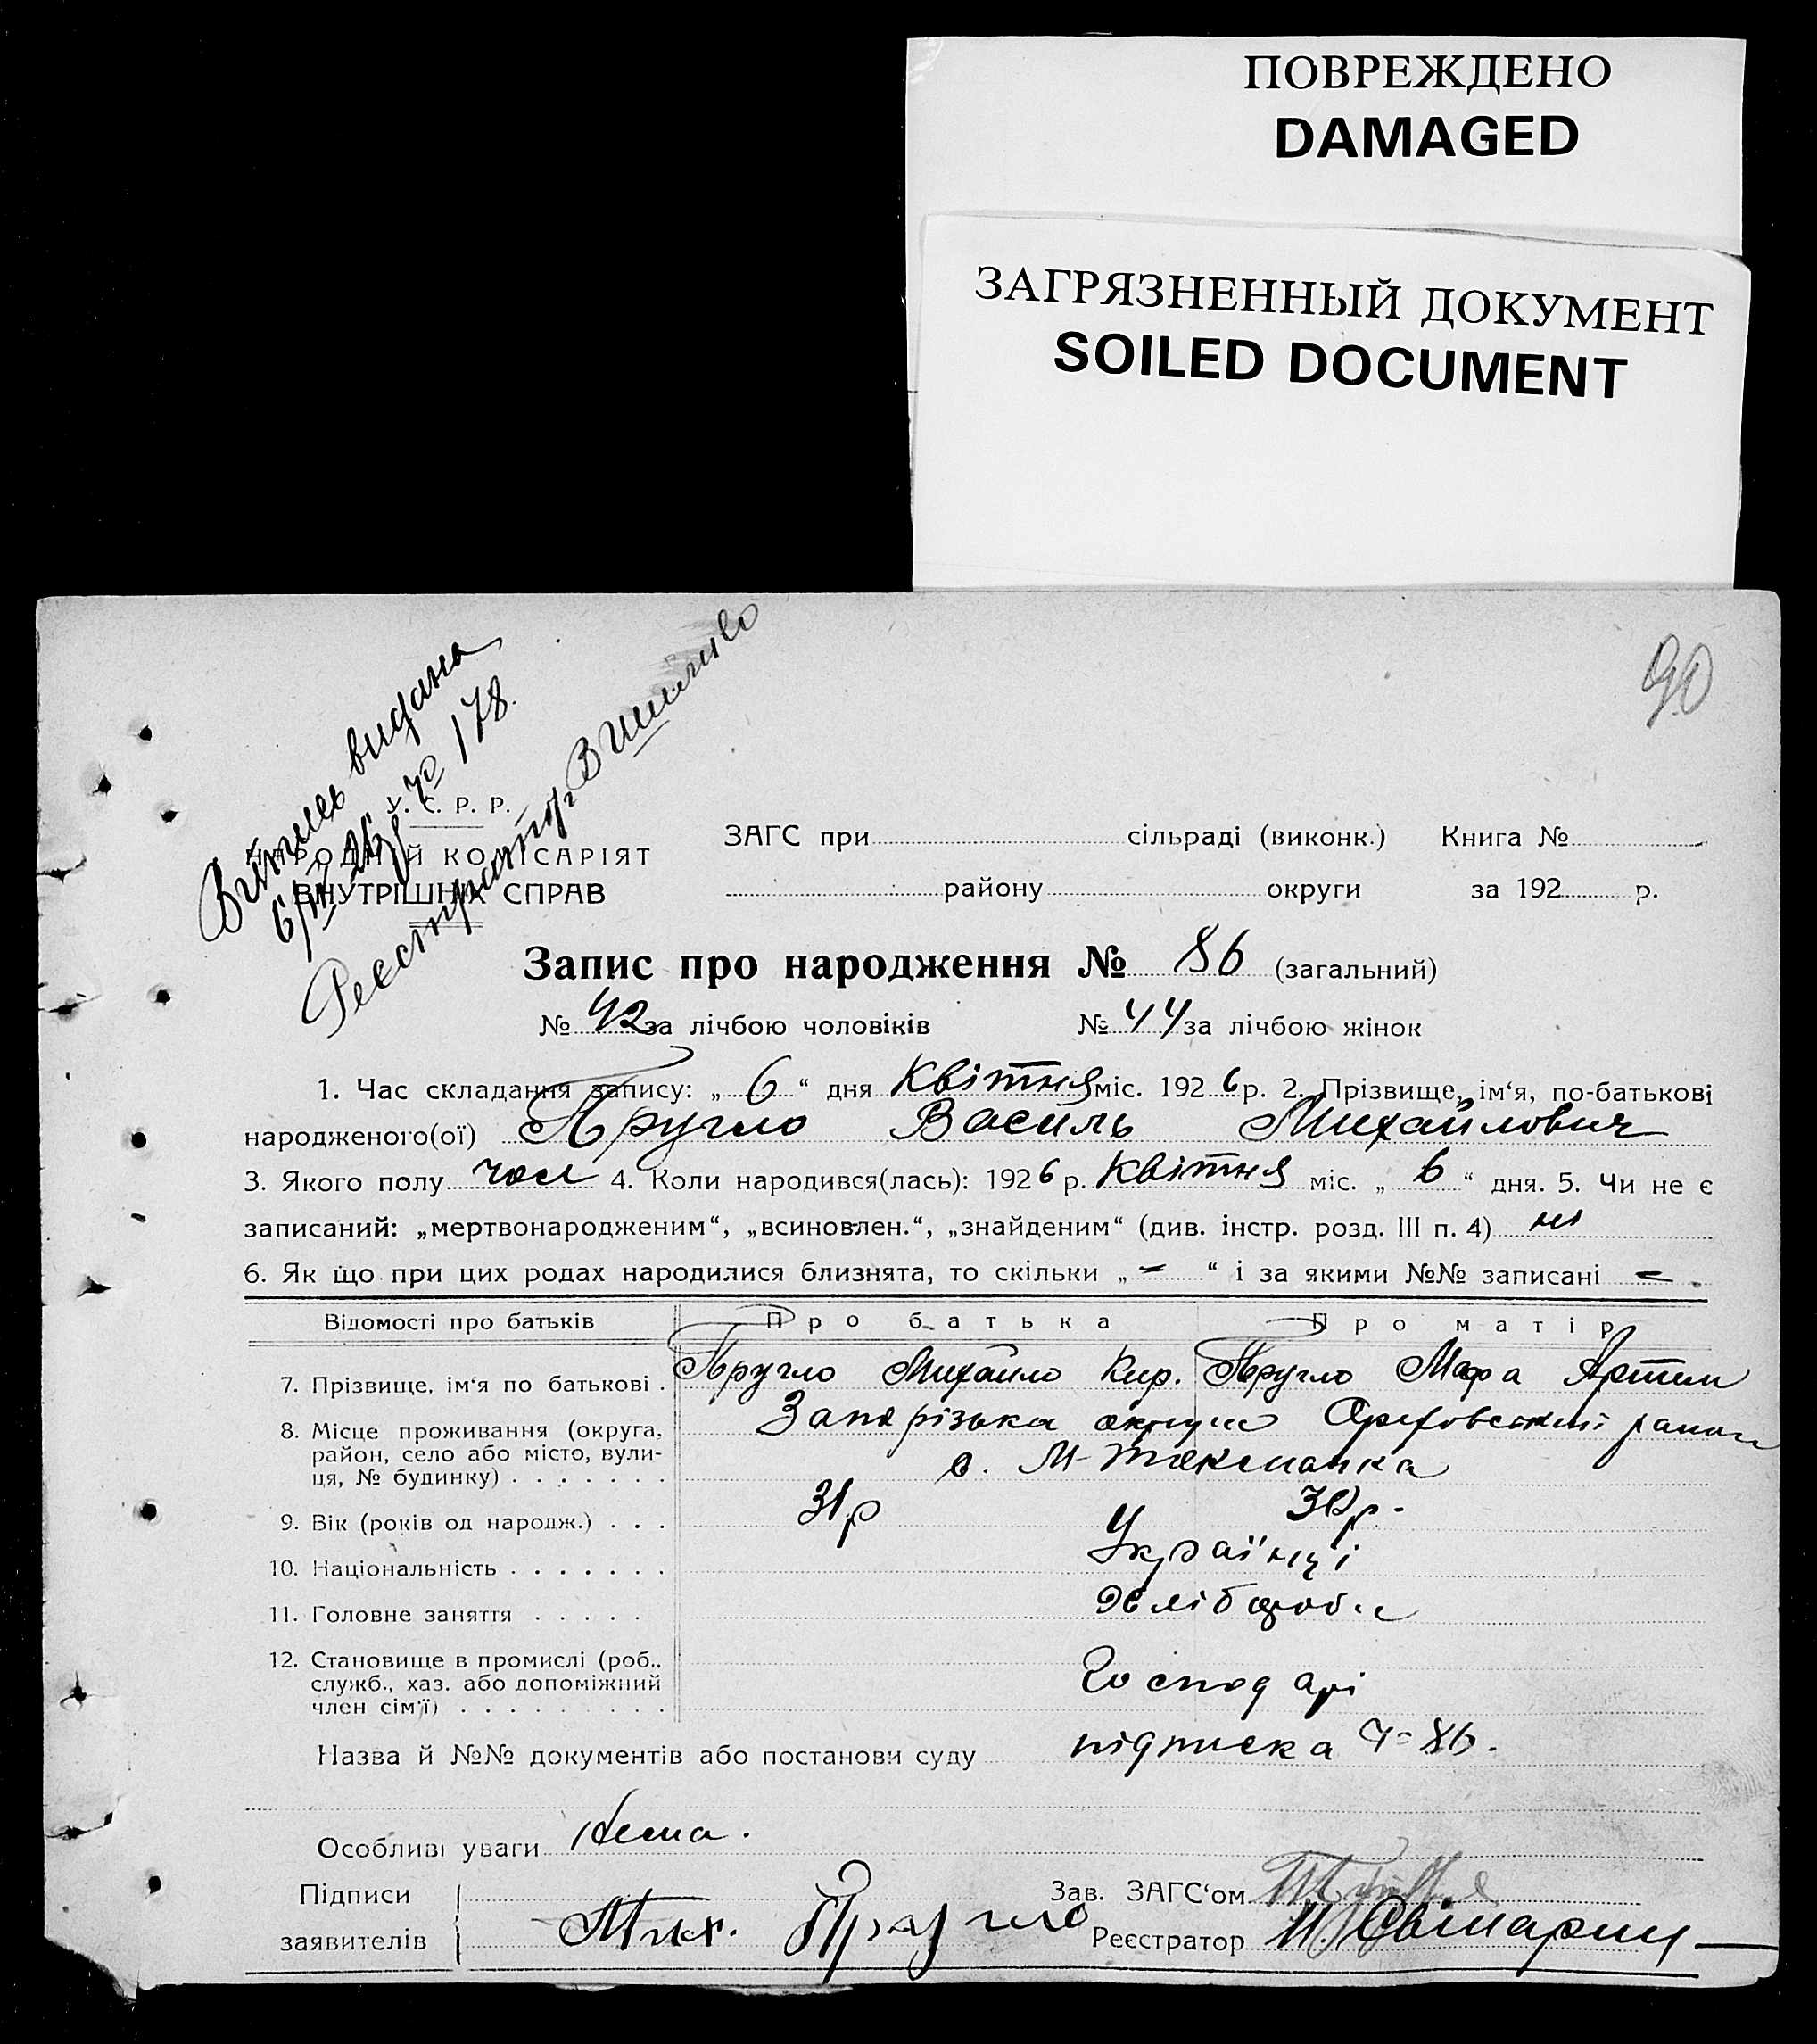 ПОВРЕЖДЕНО
DAMAGED
ЗАГРЯЗНЕННЫЙ ДОКУМЕНТ
SOILED DOCUMENT
90
Витись видана
6/IV 26 р № 178.
Реєстратор
У. С. Р. Р.
НАРОДНІЙ КОМІСАРІЯТ
ВНУТРІШНІХ СПРАВ
ЗАГС при сільраді (виконк.) Книга №
району округи за 192 р.
Запис про народження № 86 (загальний)
№ 42 за лічбою чоловіків № 44 за лічбою жінок
1. Час складання запису: „ 6 “ дня Квітня міс. 192 6 р. 2. Прізвище, ім‘я, по-батькові
народженого(ої) Пругло Василь Михайлович
3. Якого полу чол 4. Коли народився(лась): 192 6 р. Квітня міс. „ 6 “ дня. 5. Чи не є
записаний: „мертвонародженим“, „всиновлен.“, „знайденим“ (див. інстр. розд. III п. 4) ні
6. Як що при цих родах народилися близнята, то скільки „ – “ і за якими №№ записані – .
Відомості про батьків Про батька Про матір
7. Прізвище, ім‘я по батькові . Пругло Михайло Кир. Пругло Артем
8. Місце проживання (округа, Запорізька округи Оріховський район
район, село або місто, вули- с. М-Токмачка
ця, № будинку) . . . . . . .
9. Вік (років од народж.) . . . 31 р 30 р.
10. Національність . . . . . . . Українці
11. Головне заняття . . . . . Хлібороби
12. Становище в промислі (роб.. Господарі
служб., хаз. або допоміжний
член сім‘ї) . . . . . . . . .
Назва й №№ документів або постанови суду підписка ч= 86.
Особливі уваги Нема.
Підписи Зав. ЗАГС‘ом
заявителів Мих. Пругло Реєстратор